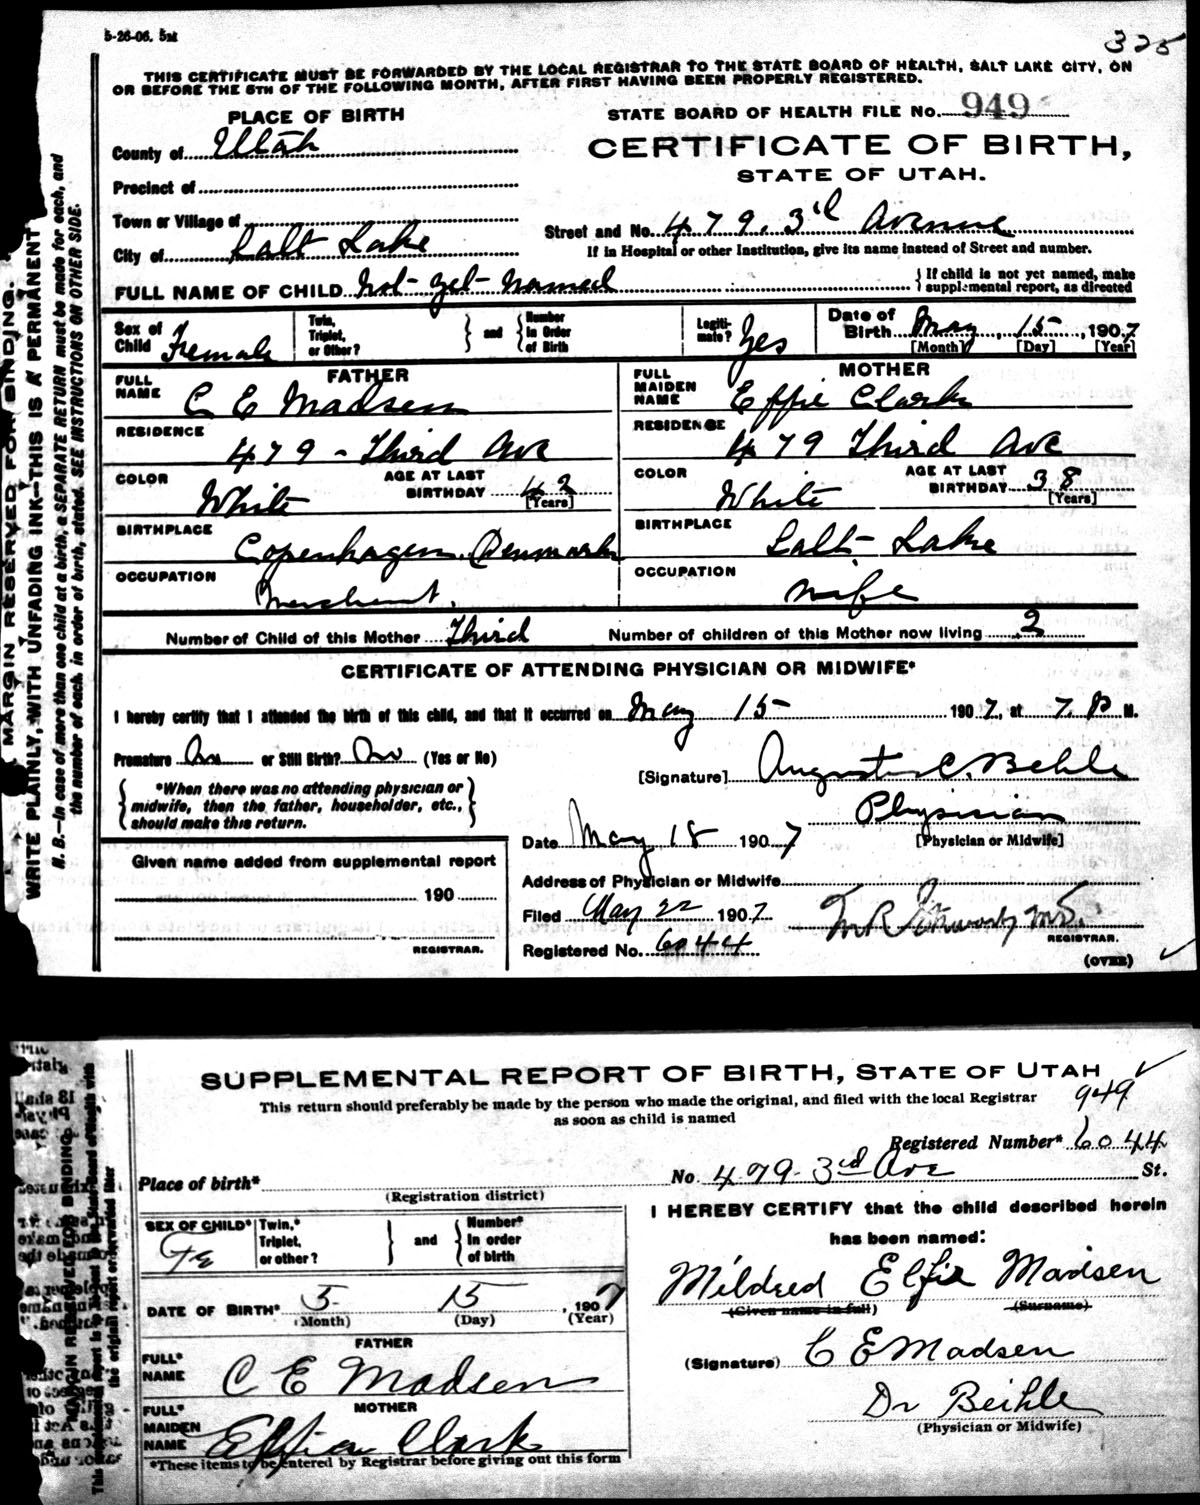 5-26-06. 5M
325
THIS CERTIFICATE MUST BE FORWARDED BY THE LOCAL REGISTRAR TO THE STATE BOARD OF HEALTH, SALT LAKE CITY, ON
OR BEFORE THE 5TH OF THE FOLLOWING MONTH, AFTER FIRST HAVING BEEN PROPERLY REGISTERED.
PLACE OF BIRTH
STATE BOARD OF HEALTH FILE No. 949
County of Utah
CERTIFICATE OF BIRTH,
STATE OF UTAH.
Precinct of
Town or Village of
Street and No. 479. 3'd Avenue
City of Salt Lake
If in Hospital or other Institution, give its name instead of Street and number.
FULL NAME OF CHILD Not yet named
If child is not yet named, make
supplemental report, as directed
Sex of Child Female
Twin, Triplet, or Other?
and
Number in Order of Birth
Legiti-mate? Yes
Date of Birth May 15, 1907
[Month] [Day] [Year]
FATHER
FULL NAME C E Madsen
RESIDENCE 479 - Third Ave
COLOR White
AGE AT LAST BIRTHDAY 42 [Years]
BIRTHPLACE Copenhagen, Denmark
OCCUPATION Merchant.
MOTHER
FULL MAIDEN NAME Effie Clark
RESIDENCE 479 Third Ave
COLOR White
AGE AT LAST BIRTHDAY 38 [Years]
BIRTHPLACE Salt Lake
OCCUPATION wife
Number of Child of this Mother Third Number of children of this Mother now living 2
CERTIFICATE OF ATTENDING PHYSICIAN OR MIDWIFE*
I hereby certify that I attended the birth of this child, and that it occurred on May 15 1907, at 7. P M.
Premature No or Still Birth? No (Yes or No)
[Signature] Augustus C. Behle
*When there was no attending physician or
midwife, then the father, householder, etc.,
should make this return.
Physician
[Physician or Midwife]
Date May 18 1907
Given name added from supplemental report
190
REGISTRAR.
Address of Physician or Midwife
Filed May 22 1907
REGISTRAR.
Registered No. 6044
(OVER)
MARGIN RESERVED FOR BINDING.
WRITE PLAINLY, WITH UNFADING INK—THIS IS A PERMANENT
N. B.—In case of more than one child at a birth, a SEPARATE RETURN must be made for each, and
the number of each, in order of birth, stated. SEE INSTRUCTIONS ON OTHER SIDE.
SUPPLEMENTAL REPORT OF BIRTH, STATE OF UTAH
This return should preferably be made by the person who made the original, and filed with the local Registrar
as soon as child is named
949
Registered Number* 6044
Place of birth*
(Registration district)
No. 479 3rd Ave St.
SEX OF CHILD* Fe
Twin,* Triplet, or other?
and
Number* in order of birth
DATE OF BIRTH* 5 15, 1907
(Month) (Day) (Year)
FATHER
FULL* NAME C E Madsen
MOTHER
FULL* MAIDEN NAME Effie Clark
*These items to be entered by Registrar before giving out this form
I HEREBY CERTIFY that the child described herein
has been named:
Mildred Elfie Madsen
(Given name in full) (Surname)
(Signature) C E Madsen
Dr Beihle
(Physician or Midwife)